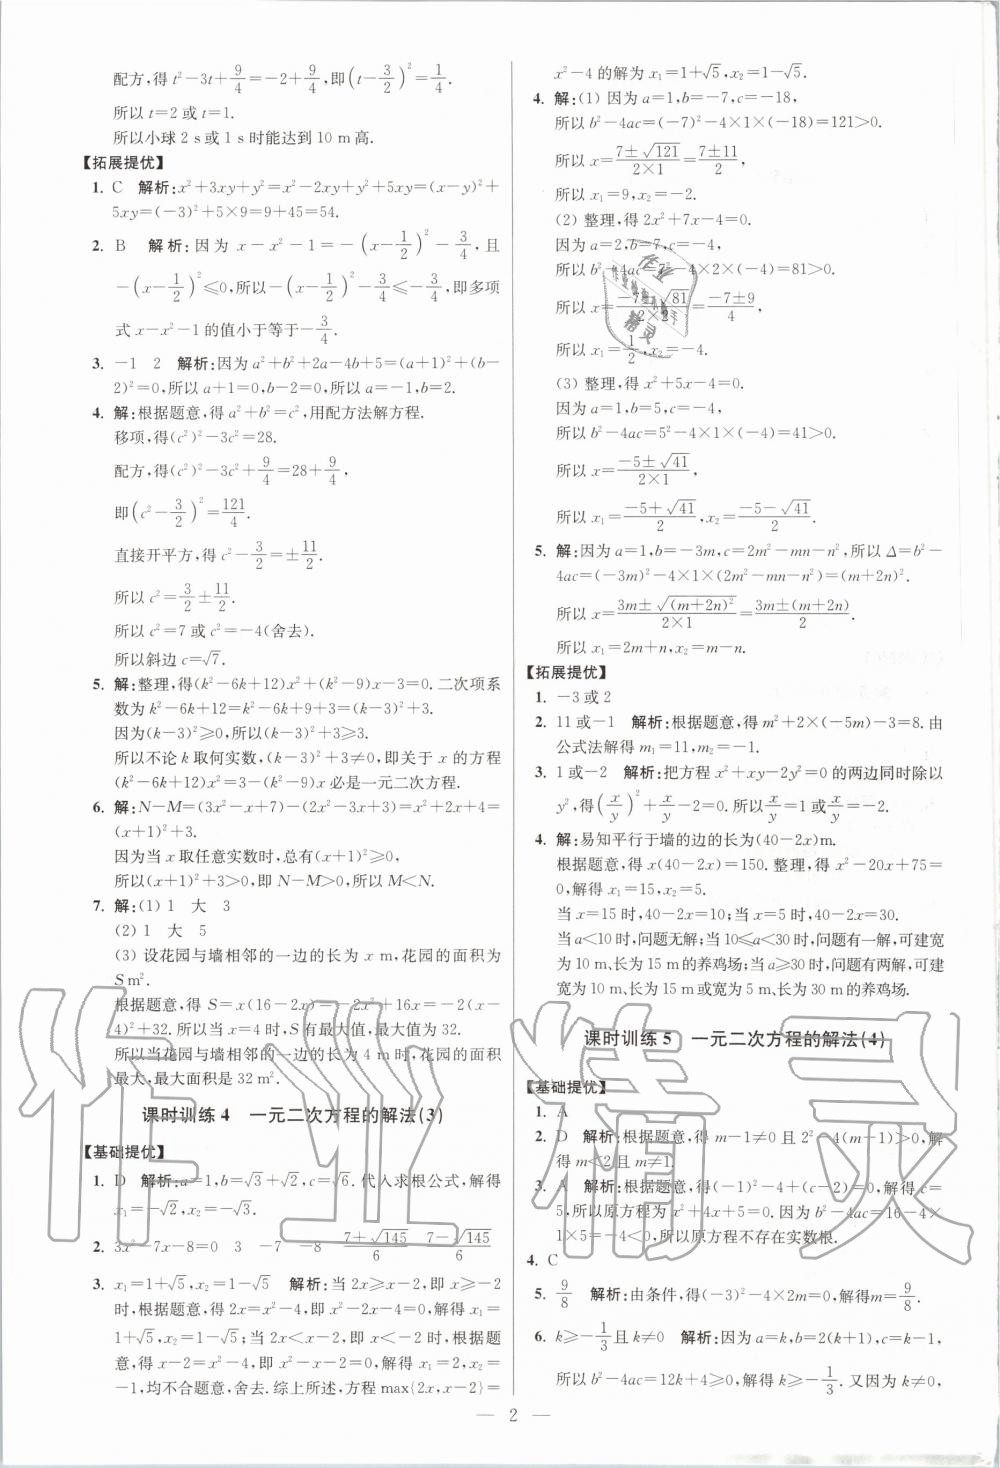 配方,得t²-3t+9/4=-2+9/4,即(t-3/2)²=1/4.
所以t=2或t=1.
所以小球2 s或1 s时能达到10 m高.
【拓展提优】
1. C 解析:x²+3xy+y²=x²-2xy+y²+5xy=(x-y)²+
5xy=(-3)²+5×9=9+45=54.
2. B 解析:因为x-x²-1=-(x-1/2)²-3/4,且
-(x-1/2)²≤0,所以-(x-1/2)²-3/4≤-3/4,即多项
式x-x²-1的值小于等于-3/4.
3. -1 2 解析:因为a²+b²+2a-4b+5=(a+1)²+(b-
2)²=0,所以a+1=0,b-2=0,所以a=-1,b=2.
4. 解:根据题意,得a²+b²=c²,用配方法解方程.
移项,得(c²)²-3c²=28.
配方,得(c²)²-3c²+9/4=28+9/4,
即(c²-3/2)²=121/4.
直接开平方,得c²-3/2=±11/2.
所以c²=3/2±11/2.
所以c²=7或c²=-4(舍去).
所以斜边c=√7.
5. 解:整理,得(k²-6k+12)x²+(k²-9)x-3=0.二次项系
数为k²-6k+12=k²-6k+9+3=(k-3)²+3.
因为(k-3)²≥0,所以(k-3)²+3≥3.
所以不论k取何实数,(k-3)²+3≠0,即关于x的方程
(k²-6k+12)x²=3-(k²-9)x必是一元二次方程.
6. 解:N-M=(3x²-x+7)-(2x²-3x+3)=x²+2x+4=
(x+1)²+3.
因为当x取任意实数时,总有(x+1)²≥0,
所以(x+1)²+3>0,即N-M>0,所以M<N.
7. 解:(1) 1 大 3
(2) 1 大 5
(3) 设花园与墙相邻的一边的长为x m,花园的面积为
S m².
根据题意,得S=x(16-2x)=-2x²+16x=-2(x-
4)²+32.所以当x=4时,S有最大值,最大值为32.
所以当花园与墙相邻的一边的长为4 m时,花园的面积
最大,最大面积是32 m².
课时训练4 一元二次方程的解法(3)
【基础提优】
1. D 解析:a=1,b=√3+√2,c=√6.代入求根公式,解得
x₁=-√2,x₂=-√3.
2. 3x²-7x-8=0 3 -7 -8 (7+√145)/6 (7-√145)/6
3. x₁=1+√5,x₂=1-√5 解析:当2x≥x-2,即x≥-2
时,根据题意,得2x=x²-4,即x²-2x-4=0,解得x₁=
1+√5,x₂=1-√5;当2x<x-2,即x<-2时,根据题
意,得x-2=x²-4,即x²-x-2=0,解得x₁=2,x₂=
-1,均不合题意,舍去.综上所述,方程max{2x,x-2}=
x²-4的解为x₁=1+√5,x₂=1-√5.
4. 解:(1) 因为a=1,b=-7,c=-18,
所以b²-4ac=(-7)²-4×1×(-18)=121>0.
所以x=(7±√121)/(2×1)=(7±11)/2,
所以x₁=9,x₂=-2.
(2) 整理,得2x²+7x-4=0.
因为a=2,b=7,c=-4,
所以b²-4ac=7²-4×2×(-4)=81>0.
所以x=(-7±√81)/(2×2)=(-7±9)/4,
所以x₁=1/2,x₂=-4.
(3) 整理,得x²+5x-4=0.
因为a=1,b=5,c=-4,
所以b²-4ac=5²-4×1×(-4)=41>0.
所以x=(-5±√41)/(2×1),
所以x₁=(-5+√41)/2,x₂=(-5-√41)/2.
5. 解:因为a=1,b=-3m,c=2m²-mn-n²,所以Δ=b²-
4ac=(-3m)²-4×1×(2m²-mn-n²)=(m+2n)².
所以x=(3m±√(m+2n)²)/(2×1)=(3m±(m+2n))/2.
所以x₁=2m+n,x₂=m-n.
【拓展提优】
1. -3或2
2. 11或-1 解析:根据题意,得m²+2×(-5m)-3=8.由
公式法解得m₁=11,m₂=-1.
3. 1或-2 解析:把方程x²+xy-2y²=0的两边同时除以
y²,得(x/y)²+x/y-2=0.所以x/y=1或x/y=-2.
4. 解:易知平行于墙的边的长为(40-2x)m.
根据题意,得x(40-2x)=150.整理,得x²-20x+75=
0,解得x₁=15,x₂=5.
当x=15时,40-2x=10;当x=5时,40-2x=30.
当a<10时,问题无解;当10≤a<30时,问题有一解,可建宽
为10 m、长为15 m的养鸡场;当a≥30时,问题有两解,可建
宽为10 m、长为15 m或宽为5 m、长为30 m的养鸡场.
课时训练5 一元二次方程的解法(4)
【基础提优】
1. A
2. D 解析:根据题意,得m-1≠0且2²-4(m-1)>0,解
得m<2且m≠1.
3. A 解析:根据题意,得(-1)²-4+(c-2)=0,解得c=
5,所以原方程为x²+4x+5=0.因为b²-4ac=16-4×
1×5=-4<0,所以原方程不存在实数根.
4. C
5. 9/8 解析:由条件,得(-3)²-4×2m=0,解得m=9/8.
6. k≥-1/3且k≠0 解析:因为a=k,b=2(k+1),c=k-1,
所以b²-4ac=12k+4≥0,解得k≥-1/3.又因为k≠0,
— 2 —
作业精灵